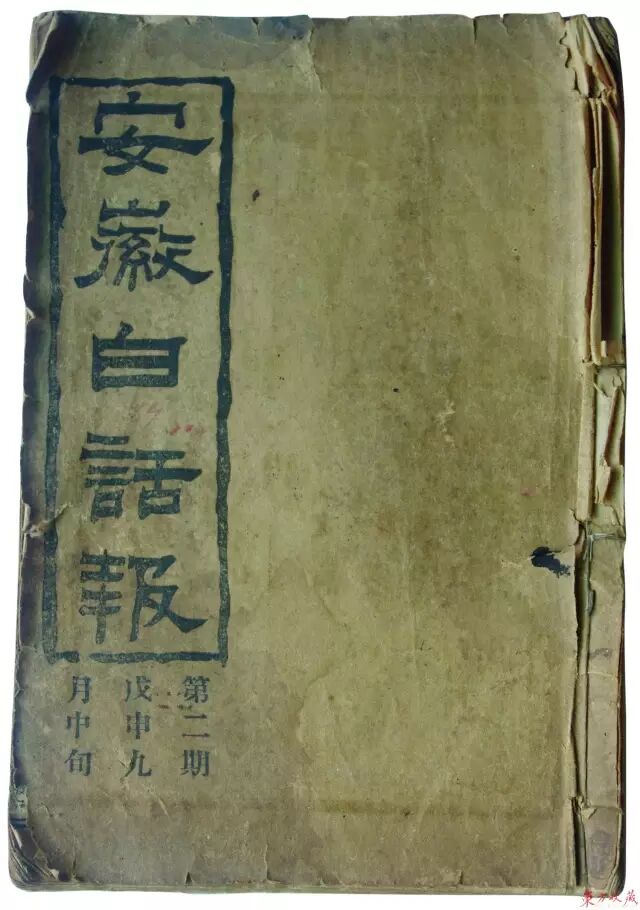 安徽白話報
第二期
戊申九
月中旬
東方收藏